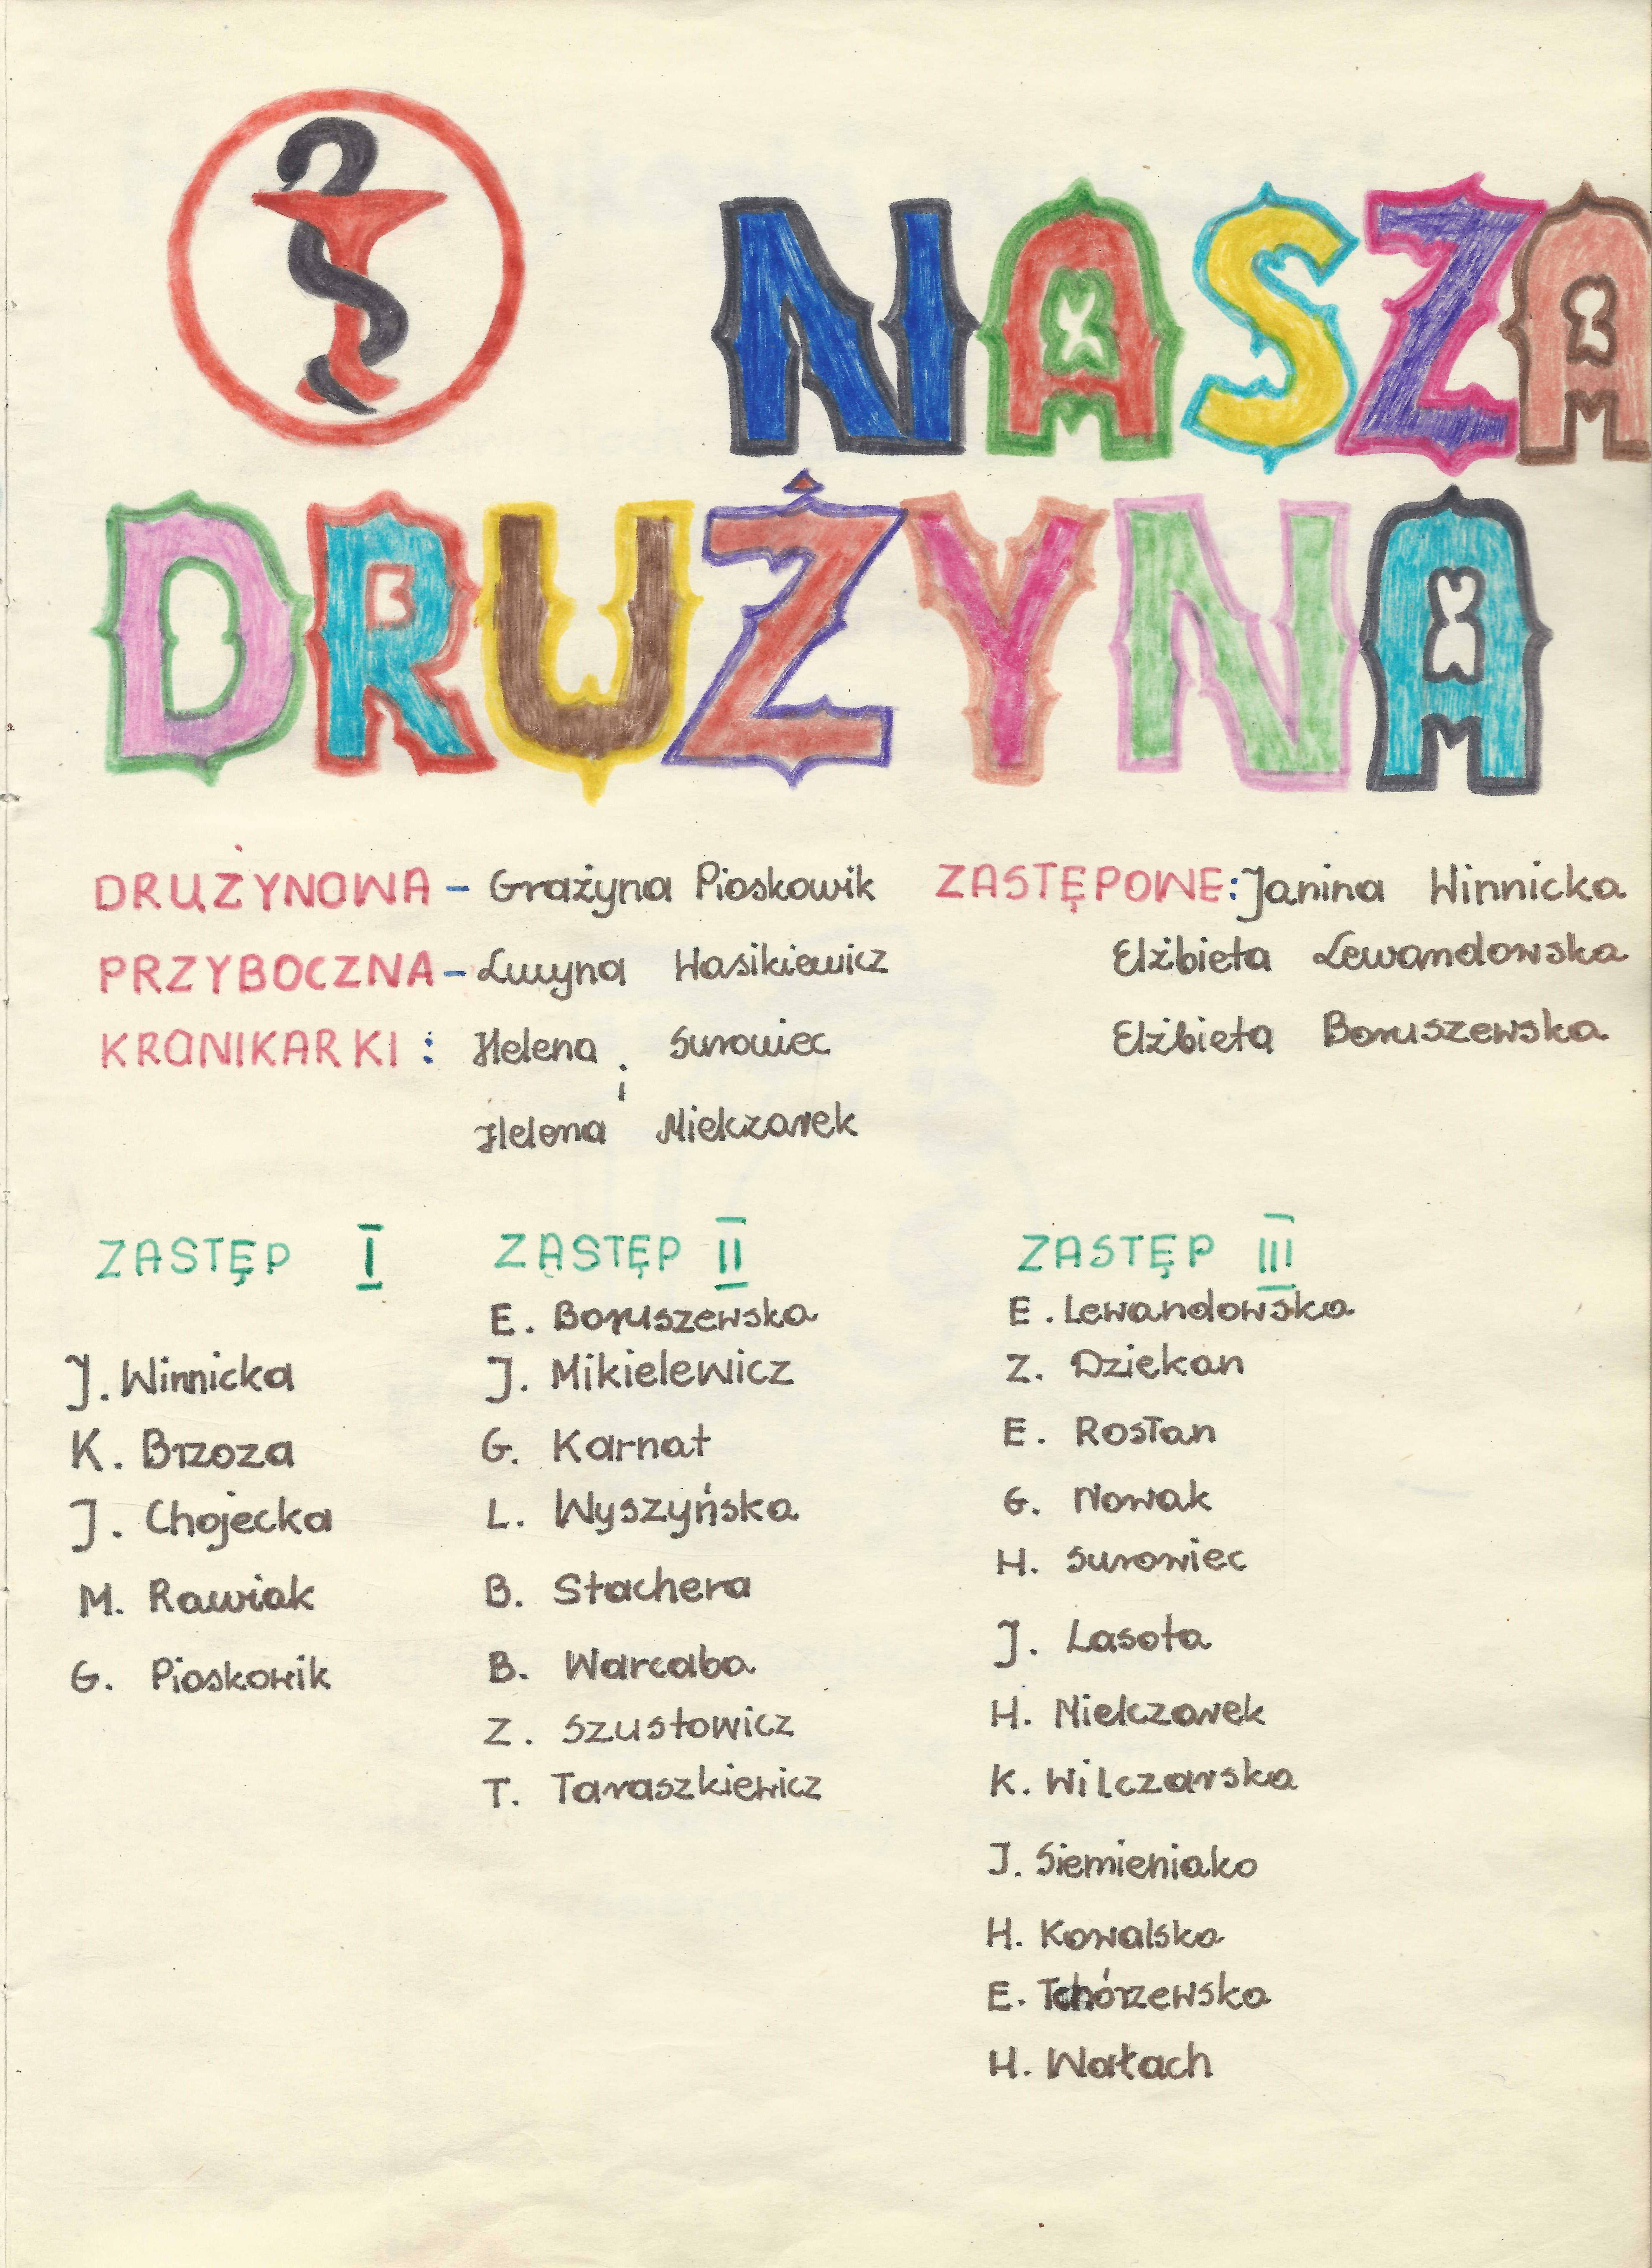 NASZA
DRUŻYNA
DRUŻYNOWA - Grażyna Pioskowik
PRZYBOCZNA - Lucyna Wasikiewicz
KRONIKARKI : Helena Surowiec
i
Helena Mielczarek
ZASTĘPOWE: Janina Winnicka
Elżbieta Lewandowska
Elżbieta Boruszewska
ZASTĘP I
J. Winnicka
K. Brzoza
J. Chojecka
M. Rawiak
G. Pioskowik
ZASTĘP II
E. Boruszewska
J. Mikielewicz
G. Karnat
L. Wyszyńska
B. Stachera
B. Warcaba
Z. Szustowicz
T. Taraszkiewicz
ZASTĘP III
E. Lewandowska
Z. Dziekan
E. Rosłan
G. Nowak
H. Surowiec
J. Lasota
H. Mielczarek
K. Wilczarska
J. Siemieniako
H. Kowalska
E. Tchórzewska
H. Wałach